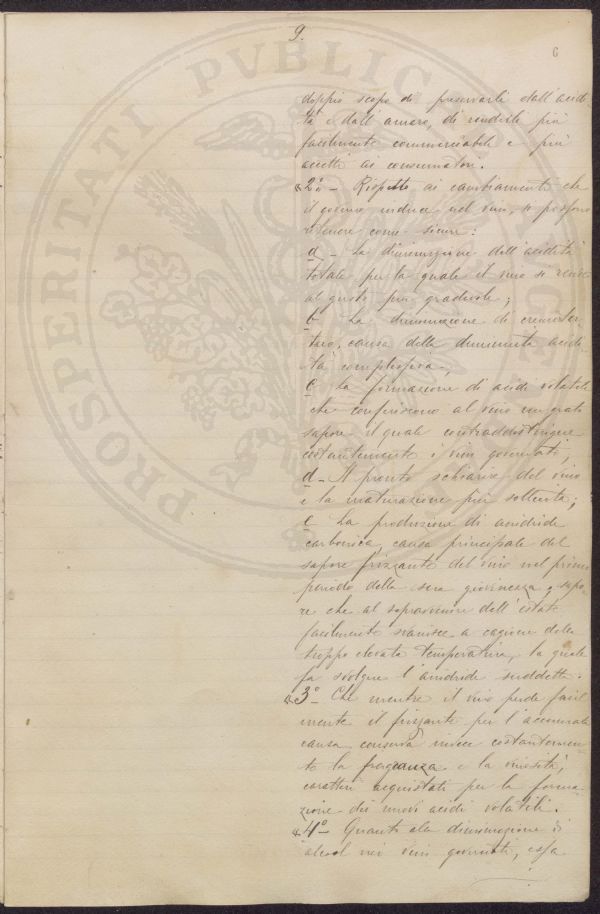 9.
6
doppio scopo di preservarli dall'acidi-
tà e dall'amaro, di renderli più
facilmente commerciabili e più
accetti ai consumatori.
2º - Rispetto ai cambiamenti che
il governo induce nel vino, si possono
ritenere come sicure:
a - La diminuzione dell'acidità
totale per la quale il vino si rende
al gusto più gradevole;
b - La diminuzione di cremor-
taro, causa della diminuita acidi-
tà complessiva;
c - La formazione di acidi volatili
che conferiscono al vino un grato
sapore il quale contraddistingue
costantemente i vini governati;
d - Il pronto schiarire del vino
e la maturazione più sollecita;
e - La produzione di anidride
carbonica, causa principale del
sapore frizzante del vino nel primo
periodo della sua giovinezza, sapo-
re che al sopravvenire dell'estate
facilmente svanisce a cagione della
troppo elevata temperatura, la quale
fa svolgere l'anidride suddetta.
3º - Che mentre il vino perde facil
mente il frizzante per l'accennata
causa conserva invece costantemen-
te la fragranza e la vinosità,
caratteri acquistati per la forma-
zione dei nuovi acidi volatili.
4º - Quanto alla diminuzione di
alcool nei vini governati, essa
PROSPERITATI PUBLICAE